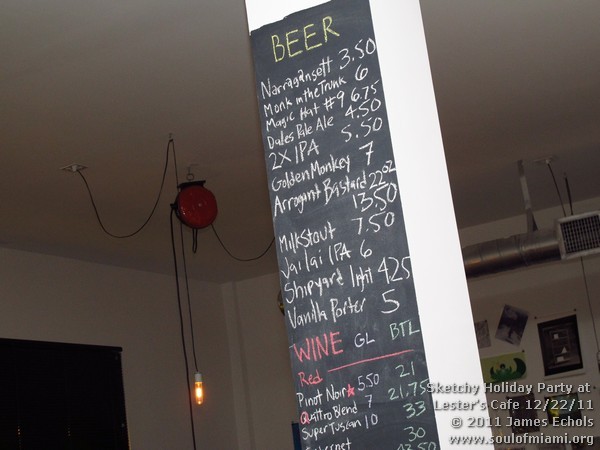 BEER
Narragansett 3.50
Monk in the Trunk 6
Magic Hat #9 6.75
Dales Pale Ale 4.50
2X IPA 5.50
Golden Monkey 7
Arrogant Bastard 22oz
13.50
Milk Stout 7.50
Jai lai IPA 6
Shipyard light 4.25
Vanilla Porter 5
WINE GL BTL
Red
Pinot Noir 5.50 21
Quattro Blend 7 21.75
Super Tuscan 10 33
30
Sketchy Holiday Party at
Lester's Cafe 12/22/11
© 2011 James Echols
www.soulofmiami.org